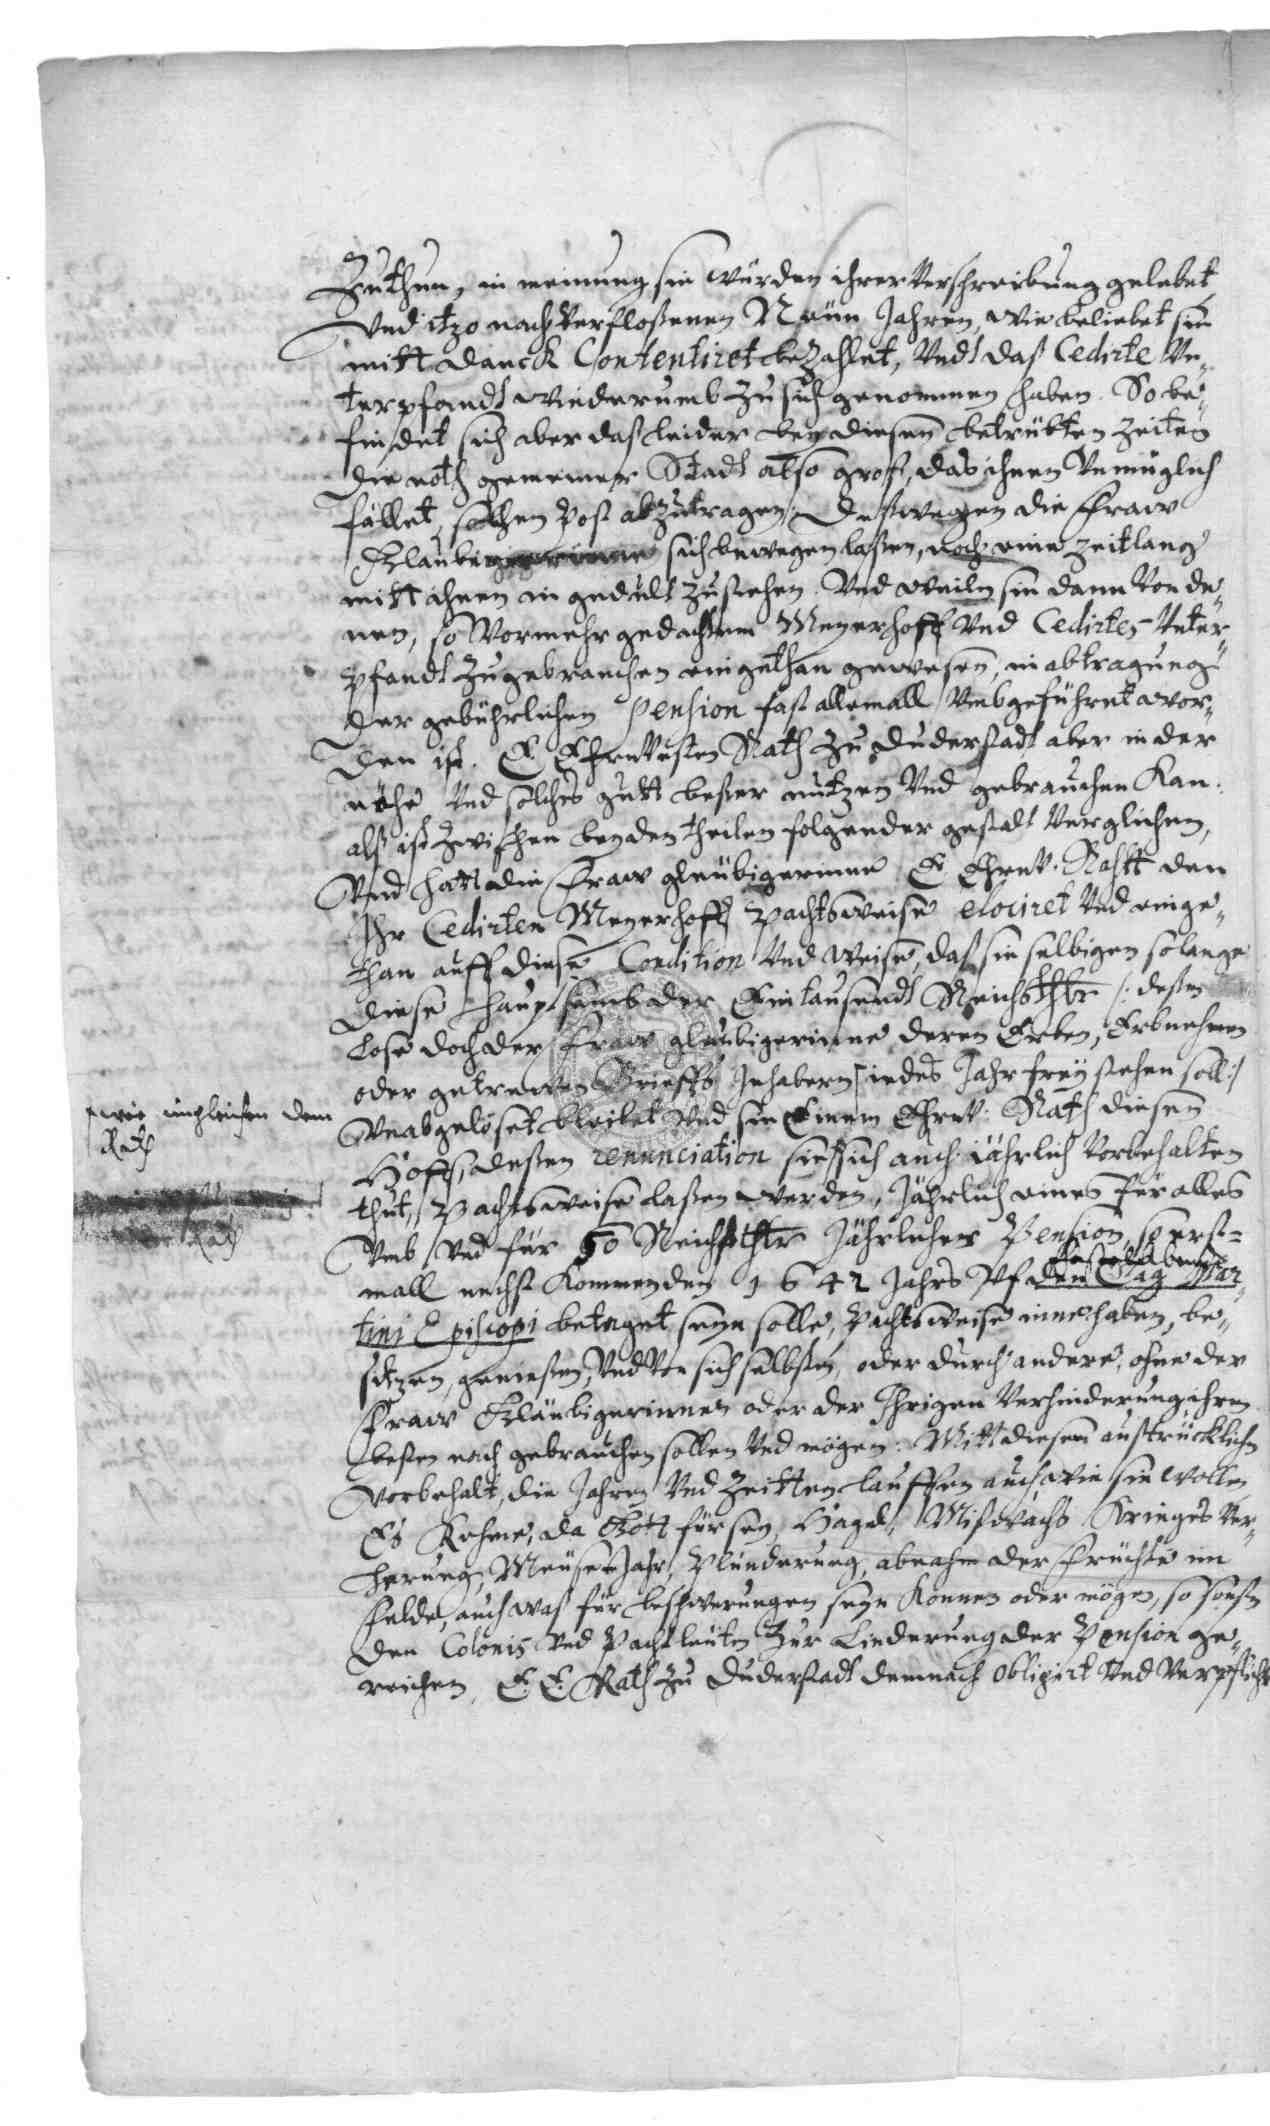 Zuthun, in meinung sie würden ihrer Verschreibung gelebet
Vnd itzo nach Verfloßenen Neün Jahren, wie beliebet sie
mitt danck Contentiret bezahlet, Vndt daß Cedirte Vn-
terpfandt wiederumb zu sich genommen haben. So be-
findet sich aber daß leider bey diesen betrübten Zeiten
die noth gemeiner Stadt also groß, das ihnen Vnmüglich
fället, solchen Post abzutragen, Deßwegen die Fraw
Glaubigerinne sich bewegen laßen, noch eine Zeitlang
mitt ihnen in gedult zustehen. Vnd weiln sie dann Von de-
nen, so Vormehrgedachten Meyerhoff Vnd Cedirtes Vnter-
pfandt zugebrauchen eingethan gewesen, in abtragung
der gebührlichen Pension fast allemall Vmbgeführet wor-
den ist. E. Ehrnvesten Rath zu Duderstadt aber in der
nehe Vnd solches gutt beßer nutzen Vnd gebrauchen Kan.
alß ist zwischen beyden theilen folgender gestalt Verglichen,
Vnd hatt die Fraw gleubigerinne E. Ehrnv. Rahtt den
Ihr Cedirten Meyerhoff Pachtsweise elociret Vnd einge-
than auff diese Condition Vnd weise, daß sie selbigen solange
diese hauptsumb der Eintausendt Reichsthlr /: deßen
Lose doch der Fraw gleubigerinne, deren Erben, Erbnehmen
oder getrewen Brieffs Inhabern iedes Jahr frey stehen soll :/
wie imgleichen dem
Rath
Vnabgelöset bleibet Vnd sie Einem Ehrnv. Rath diesen
Hoff, deßen renunciation sie sich auch jährlich Vorbehalten
thut, Pachtsweise laßen werden, Jährlich eines für alles
Rath
Vmb Vnd für 50 Reichsthlr Jährlicher Pension, so erst-
mall nechst Kommenden 1642 Jahrs Vf den Tag Mar-
tini Episcopi betaget seyn solle, Pachtsweise inne haben, be-
sitzen, genießen, Vnd Vor sich selbsten, oder durch andere, ohne der
Fraw Gläubigerinnen oder der Ihrigen Verhinderung ihrem
besten nach gebrauchen sollen Vnd mögen. Mitt diesem außtrücklichen
Vorbehalt, die Jahren Vnd Zeitten lauffen auch wie sie wollen
Es Kehme, da Gott für sey, Hagel, Mißwachs Krieges Ver-
herung, Meüse Jahr, Plünderung, abnahm der Früchte im
Felde, auch waß für beschwerungen seyn Konnen oder mögen, so sonst
den Colonis Vnd Pachtleüten Zur Linderung der Pension ge-
reichen, E. E. Rath zu Duderstadt demnach obligirt Vnd Verpflicht